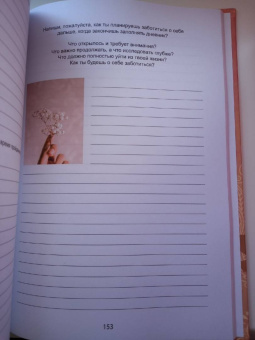 Напиши, пожалуйста, как ты планируешь заботиться о себе
дальше, когда закончишь заполнять дневник?
Что открылось и требует внимания?
Что важно продолжать, а что исследовать глубже?
Что должно полностью уйти из твоей жизни?
Как ты будешь о себе заботиться?
153